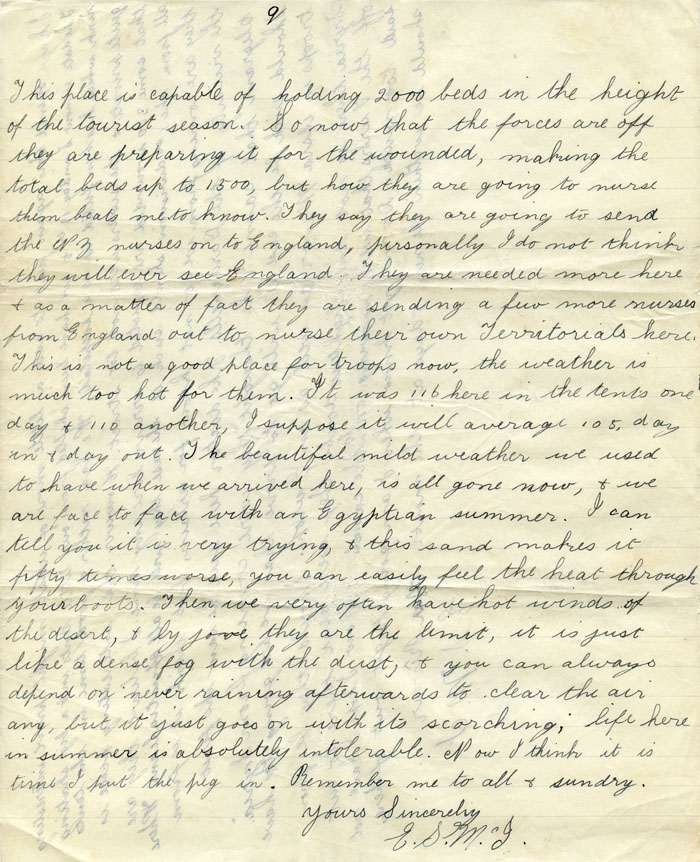 9
This place is capable of holding 2000 beds in the height
of the tourist season. So now that the forces are off
they are preparing it for the wounded, making the
total beds up to 1500, but how they are going to nurse
them beats me to know. They say they are going to send
the NZ nurses on to England, personally I do not think
they will ever see England. They are needed more here
& as a matter of fact they are sending a few more nurses
from England out to nurse their own Territorials here.
This is not a good place for troops now, the weather is
much too hot for them. It was 116 here in the tents one
day & 110 another, I suppose it will average 105, day
in & day out. The beautiful mild weather we used
to have when we arrived here, is all gone now, & we
are face to face with an Egyptian summer. I can
tell you it is very trying, & this sand makes it
fifty times worse, you can easily feel the heat through
your boots. Then we very often have hot winds of
the desert, & by jove they are the limit, it is just
like a dense fog with the dust, & you can always
depend on never raining afterwards to clear the air
any, but it just goes on with its scorching; life here
in summer is absolutely intolerable. Now I think it is
time I put the peg in. Remember me to all & sundry.
Yours Sincerely
E. S. McJ.